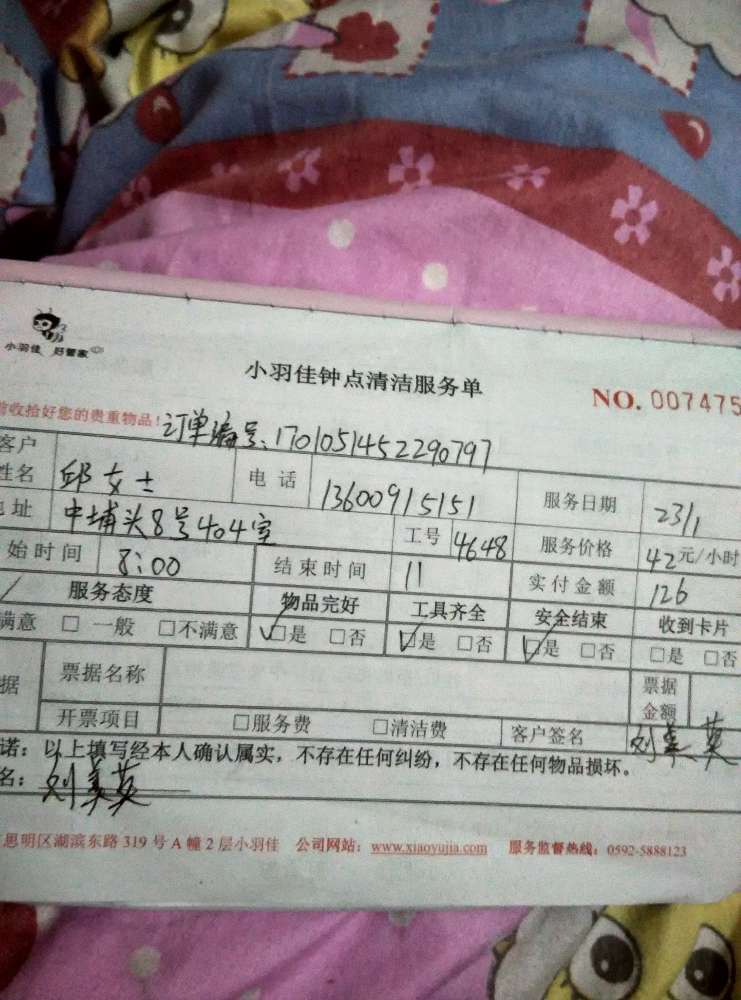 小羽佳 好管家
小羽佳钟点清洁服务单
NO. 007475
前收拾好您的贵重物品！订单编号：1701051452290797
客户姓名 邱女士 电话 13600915151 服务日期 23/1
地址 中埔头8号404室 工号 4648 服务价格 42元/小时
始时间 8:00 结束时间 11 实付金额 126
服务态度 物品完好 工具齐全 安全结束 收到卡片
满意 □一般 □不满意 ☑是 □否 ☑是 □否 ☑是 □否 □是 □否
据 票据名称 票据金额
开票项目 □服务费 □清洁费 客户签名 刘美英
诺：以上填写经本人确认属实，不存在任何纠纷，不存在任何物品损坏。
名：刘美英
思明区湖滨东路319号A幢2层小羽佳 公司网站：www.xiaoyujia.com 服务监督热线：0592-5888123